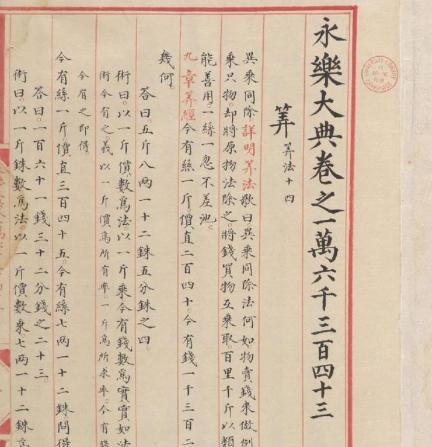 永樂大典卷之一萬六千三百四十三
筭 筭法十四
異乘同除詳明筭法歌曰異乘同除法何如物賣錢來做例
乘只物。却將原物法除之。將錢買物互乘取。百里千斤以類
能善用。一絲一忽不差池。
九章筭經今有絲一斤價直二百四十今有錢一千三百二
幾何。
答曰五斤八兩一十二銖五分銖之四。
術曰。以一斤價數為法。以一斤乘今有錢數為實實如法
術今有之義以一斤價為所有率一斤為所求率今有錢
今有之即得
今有絲一斤價直三百四十五。今有絲七兩一十二銖問得
答曰。一百六十一錢三十二分錢之二十三。
術曰。以一斤銖數為法。以一斤價數乘七兩一十二銖為